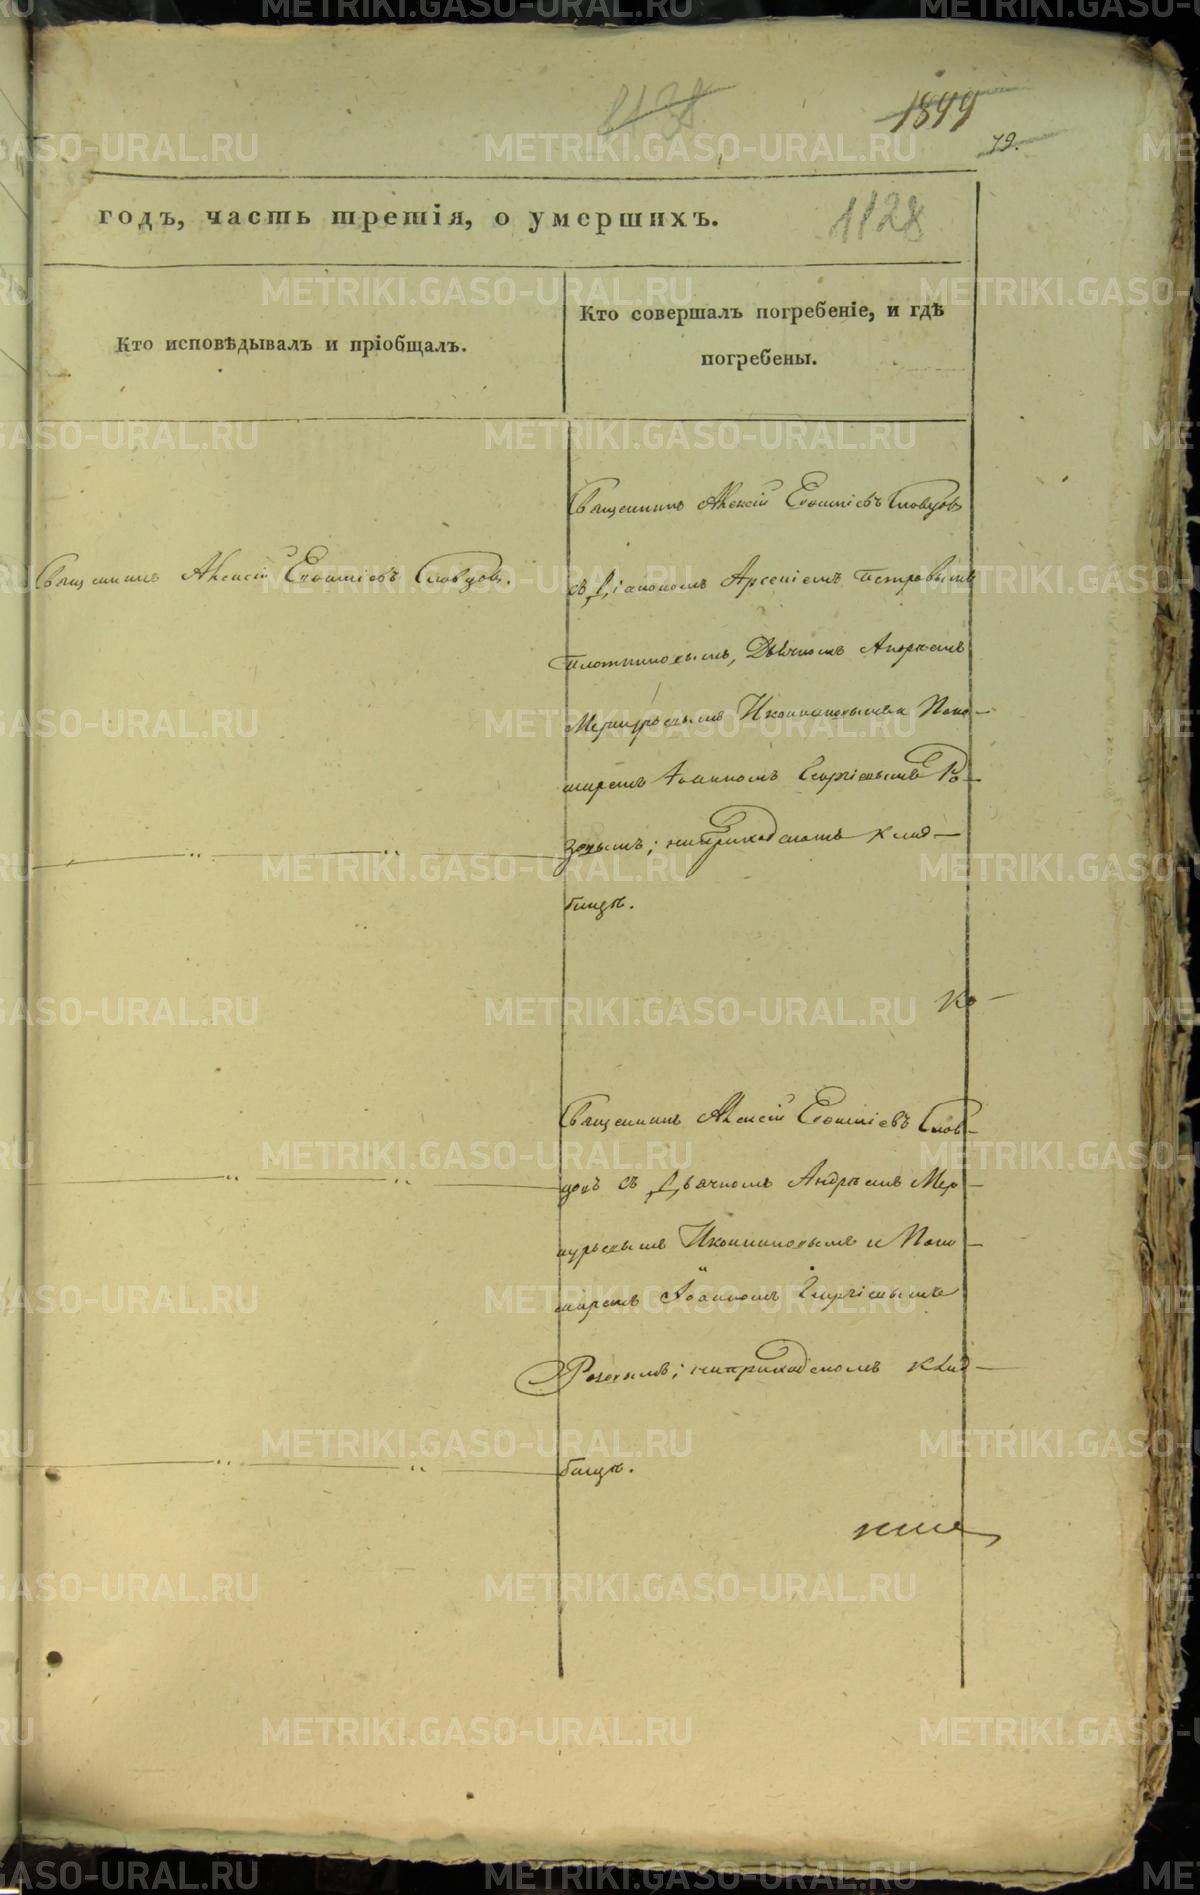 1138
1899
79.
годъ, часть третія, о умершихъ.
1128
Кто исповѣдывалъ и пріобщалъ.
Кто совершалъ погребеніе, и гдѣ
погребены.
Священникъ Алексій Словцов.
Священникъ Алексій Словцов
съ Діакономъ Арсеніемъ Петровымъ
Плотниковымъ, Дьячкомъ Андреемъ
Меркурьевымъ Иконниковымъ и Поно-
маремъ Іоанномъ Георгіевымъ Ро-
зовымъ; на приходскомъ клад-
бищѣ.
Ко-
Священникъ Алексій Слов-
цовъ съ Дьячкомъ Андреемъ Мер-
курьевымъ Иконниковымъ и Поно-
маремъ Іоанномъ Георгіевымъ
Розовымъ; на приходскомъ клад-
бищѣ.
METRIKI.GASO-URAL.RU